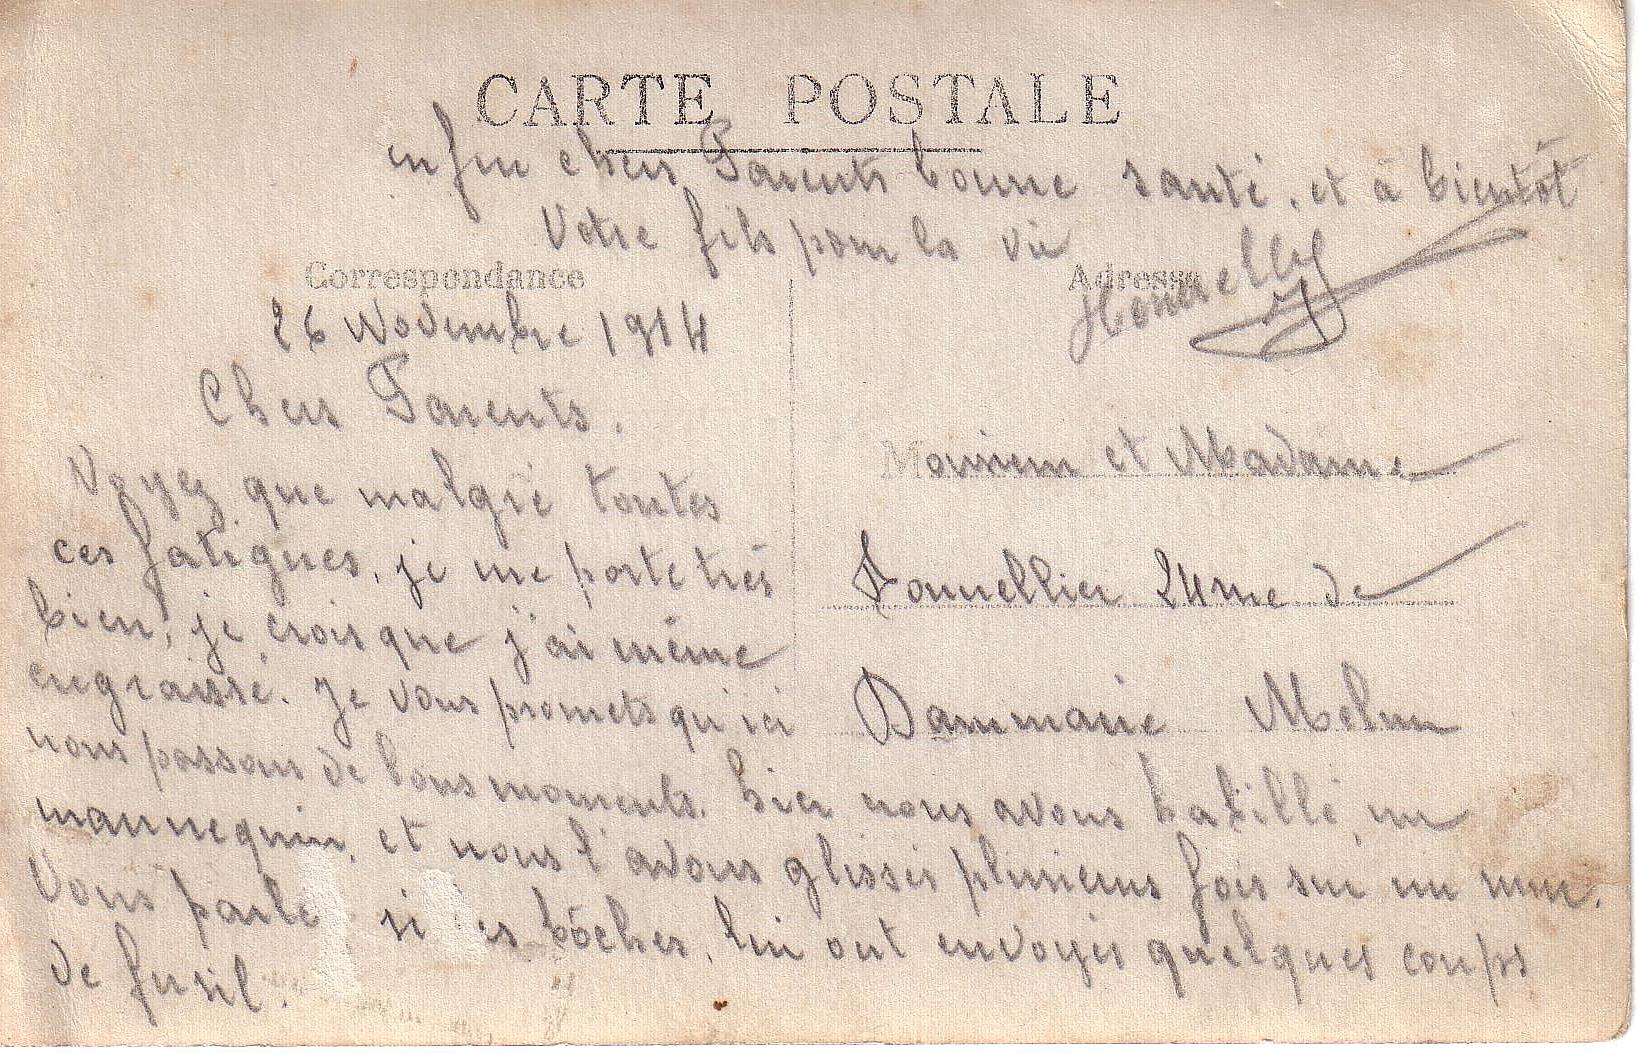 CARTE POSTALE
enfin chers Parents bonne santé, et à bientôt
Votre fils pour la vie
Correspondance
Adresse
26 Novembre 1914
Chers Parents.
Voyez que malgré toutes
ces fatigues, je me porte très
bien, je crois que j'ai même
engraissé. Je vous promets qu'ici
nous passons de bons moments. hier nous avons habillé un
mannequin, et nous l'avons glissés plusieurs fois sur un mur.
Vous parle si les bôches, lui ont envoyés quelques coups
de fusil.
Monsieur et Madame
24 rue de
Dammarie Melun